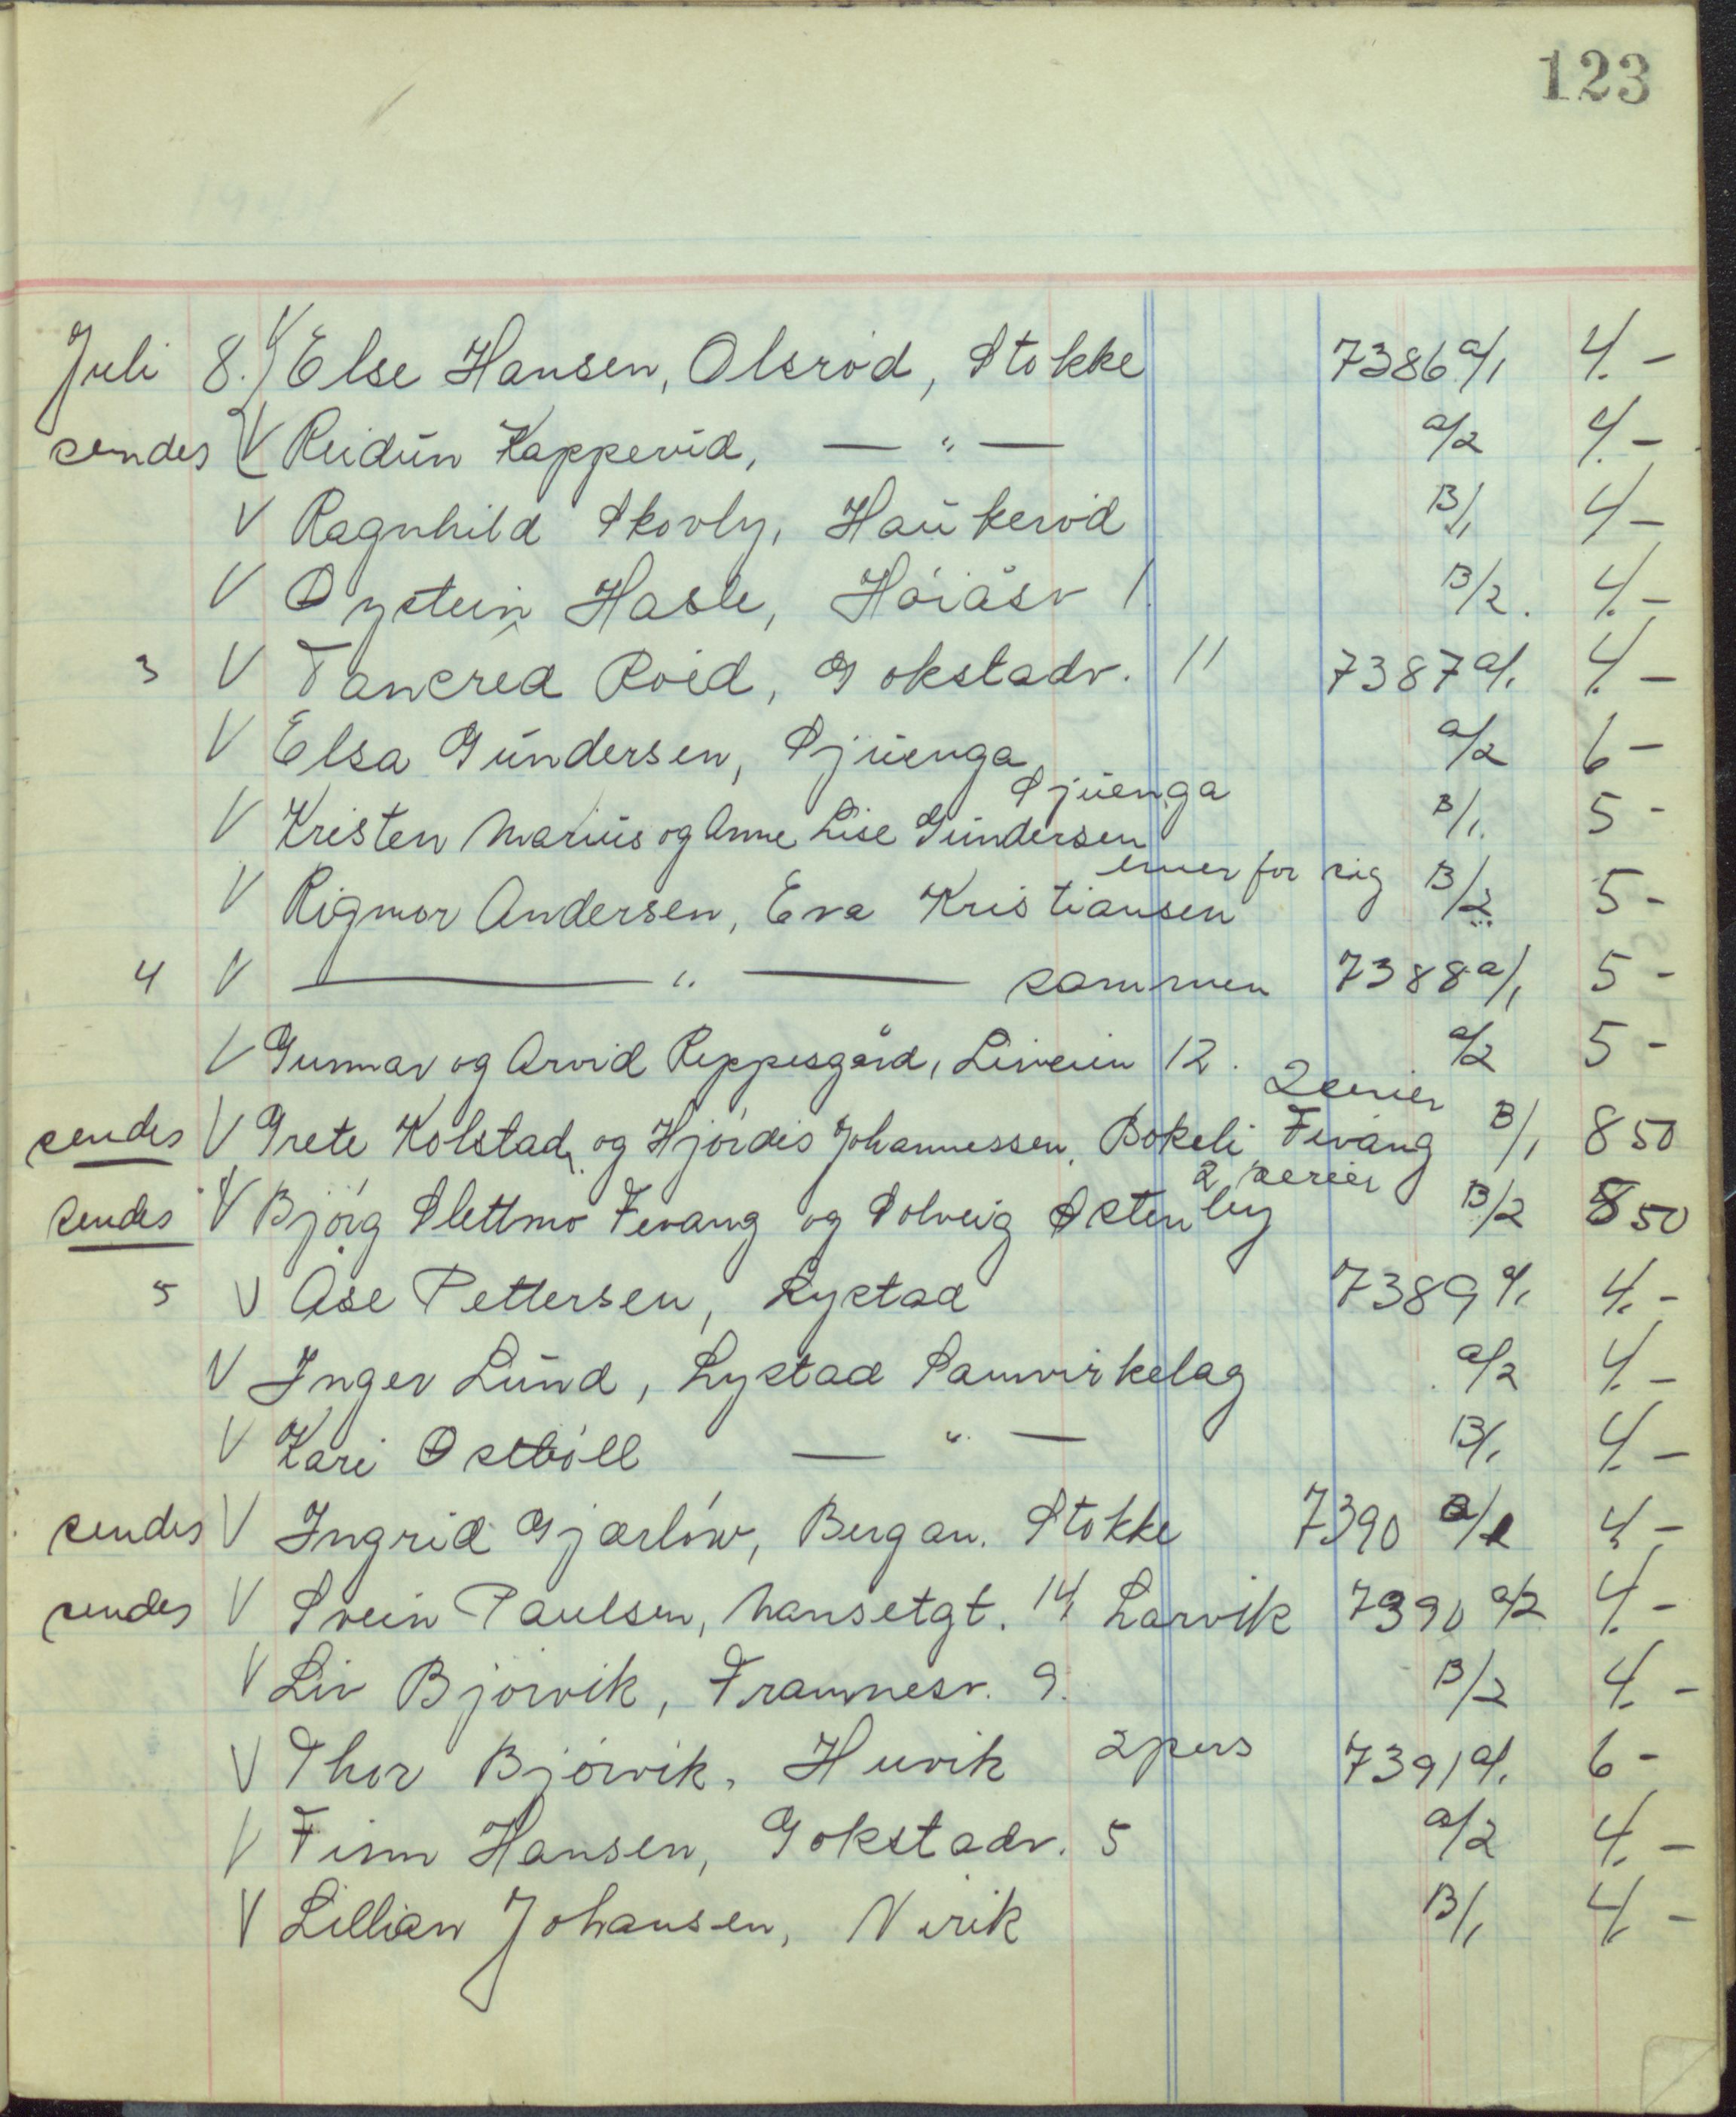 123
Juli 8. V Else Hansen, Olsrød, Stokke 7386 a/1 4.-
sendes V Reidun Kapperud, — " — a/2 4.-
V Ragnhild Skovly, Haukerød B/1 4-
V Øystein Hasle, Høiåsv 1. B/2. 4.-
3 V Tancred Roed, Gokstadv. 11 7387 a/1 4.-
V Elsa Gundersen, Sjuenga a/2 6-
Sjuenga
V Kristen Marius og Anne Lise Gundersen B/1. 5-
enner for sig
V Rigmor Andersen, Eva Kristiansen B/2 5-
4 V — " — sammen 7388 a/1 5-
V Gunnar og Arvid Reppesgård, Liveien 12. a/2 5-
2 serier
sendes V Grete Kolstad, og Hjørdis Johannessen, Bokeli Fevang B/1 8 50
2 serier
sendes V Bjørg Slettmo Fevang og Solveig Østenby B/2 8 50
5 V Åse Pettersen, Lystad 7389 a/1 4.-
V Inger Lund, Lystad Samvirkelag a/2 4.-
V Kari Østbøll — " — B/1 4.-
sendes V Ingrid Gjærløw, Bergan. Stokke 7390 B/1 4-
sendes V Svein Paulsen, Nansetgt. 14 Larvik 7390 a/2 4.-
V Liv Bjørvik, Framnesv. 9. B/2 4.-
V Thor Bjørvik, Huvik 2 pers 7391 a/1 6-
V Finn Hansen, Gokstadv. 5 a/2 4.-
V Lillian Johansen, Virik B/1 4.-